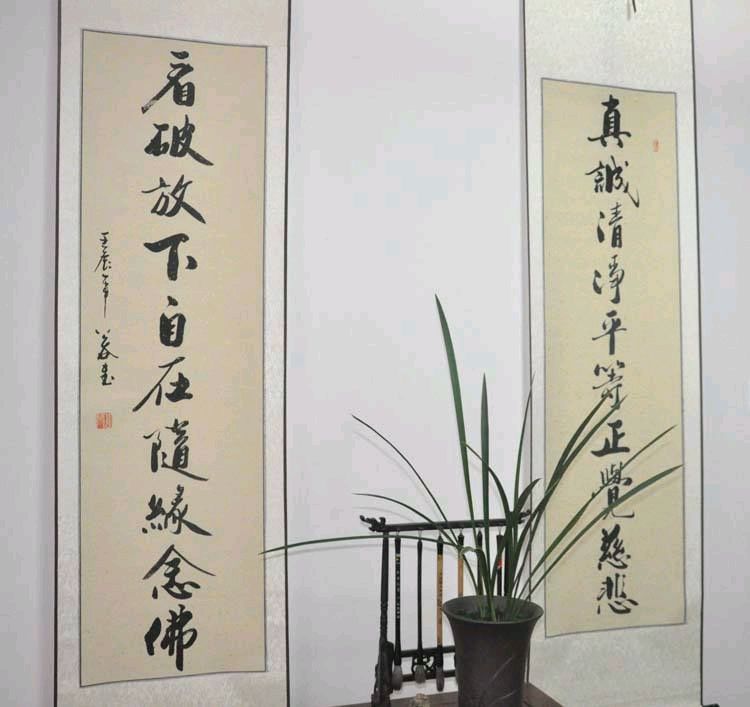 真誠清淨平等正覺慈悲
看破放下自在隨緣念佛
壬辰年